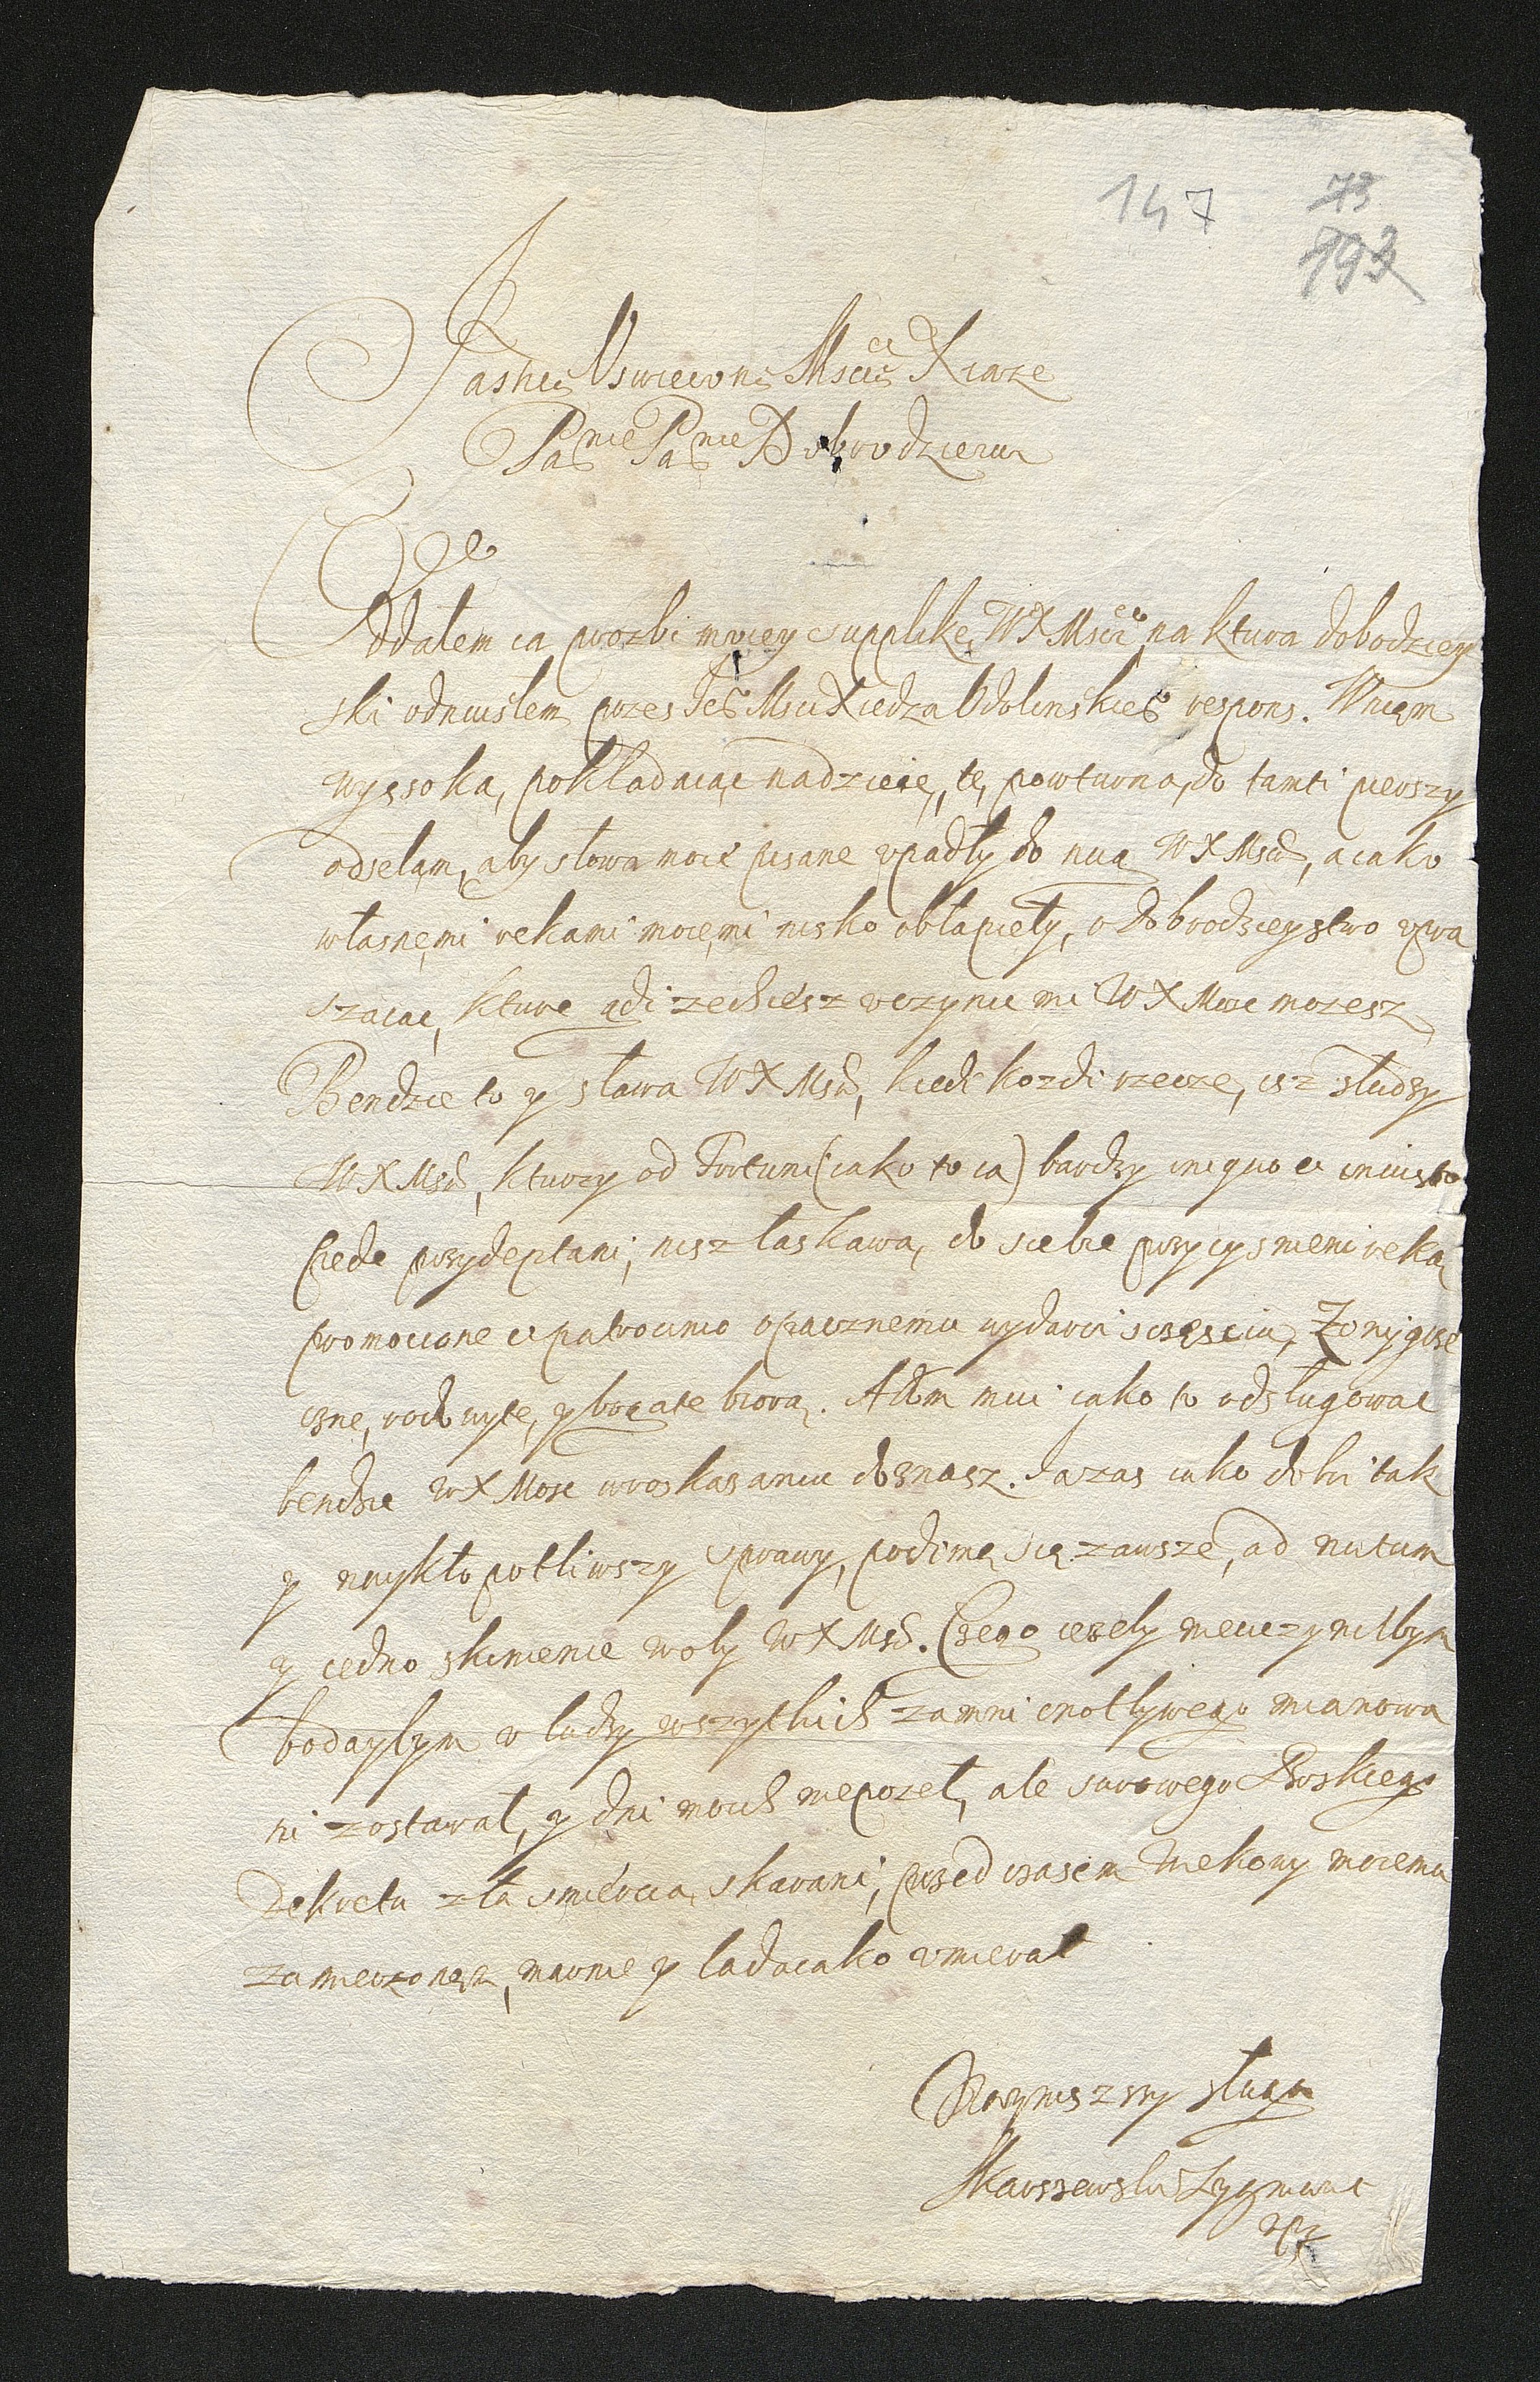 147 73
193
Jasnie Vswiecone Mscie Xiaze
Panie Panie Dobrodzieiu
Oddałem ia prozbi moiey supplike WXMsci na ktura dobodziey
ski odniuslem przes Ieo Msci Xiedza Vdolinskieo respons. W niem
wyssoka, pokładaiąc nadzieię, tę, powturna, do tamti pierszy
odsełam, aby słowa moie pisane vpadły do nug WXMsci, a iako
własnemi rekami moiemi nisko obłapieły, o dobrodzieystwo vpra
szaiac, kture gdi zechcesz vczynic mi WXMosc mozesz
Bendzie to y sława WXMsci, kiedi kozdi rzecze, isz słudzy
WXMsci, kturzy od Fortuni (iako to ia) bardzy iniquo et iniusto
pede przydeptani, nisz łaskawa, do siebie przycysnieni reka,
promocione et patrocinio opacznemu wydarci sczęsciu, Zony grze
czne, rodowyte, y bogate biora. A kom mui iako to odsługowac
bendzie WXMosc wroskasaniu doznasz. Ja zas iako dobri tak
y nuykłopotliwszy sprawy, podimę się zawsze, ad nutum
y iedno skinienie woly WXMsci. Czego iezely nieuczynilbym
bodaybym v ludzy wszytkich zamni cnotlywego mianowa
ni zostawał, y dni moich niepozeł, ale surowego Boskiego
Dekretu zła smiercia, skarani, przed czasem Wiekowy moiemu
zamierzonem, marnie y ladaiako vmierał
Naynisszy sługa
Skarszewski Zygmunt
mpr